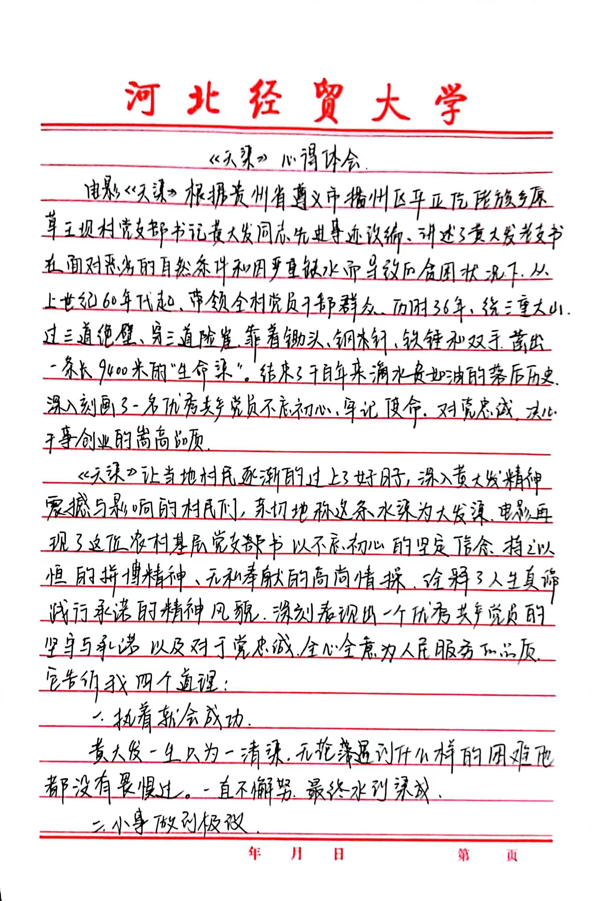 河北经贸大学
《天渠》心得体会.
电影《天渠》根据贵州省遵义市播州区平正仡佬族乡原
草王坝村党支部书记黄大发同志先进事迹改编、讲述了黄大发老支书
在面对恶劣的自然条件和因严重缺水而导致的贫困状况下.从
上世纪60年代起、带领全村党员干部群众、历时36年、绕三重大山.
过三道绝壁、穿三道险崖.靠着锄头、钢钎、铁锤和双手.凿出
一条长9400米的"生命渠"。结束了千百年来滴水贵如油的落后历史.
深入刻画了一名优秀共产党员不忘初心、牢记使命.对党忠诚、决心
干事创业的崇高品质.
《天渠》让当地村民逐渐的过上了好日子,深入黄大发精神
震撼与影响的村民们,亲切地称这条水渠为大发渠.电影再
现了这位农村基层党支部书以不忘初心的坚定信念.持之以
恒的拼博精神、无私奉献的高尚情操、诠释了人生真谛
践行承诺的精神风貌.深刻表现出一个优秀共产党员的
坚守与承诺以及对于党忠诚.全心全意为人民服务的品质.
它告诉我四个道理:
一.执着就会成功.
黄大发一生只为一清渠.无论遇到什么样的困难他
都没有畏惧过。一直不懈努.最终水到渠成.
二.小事做到极致.
年 月 日 第 页